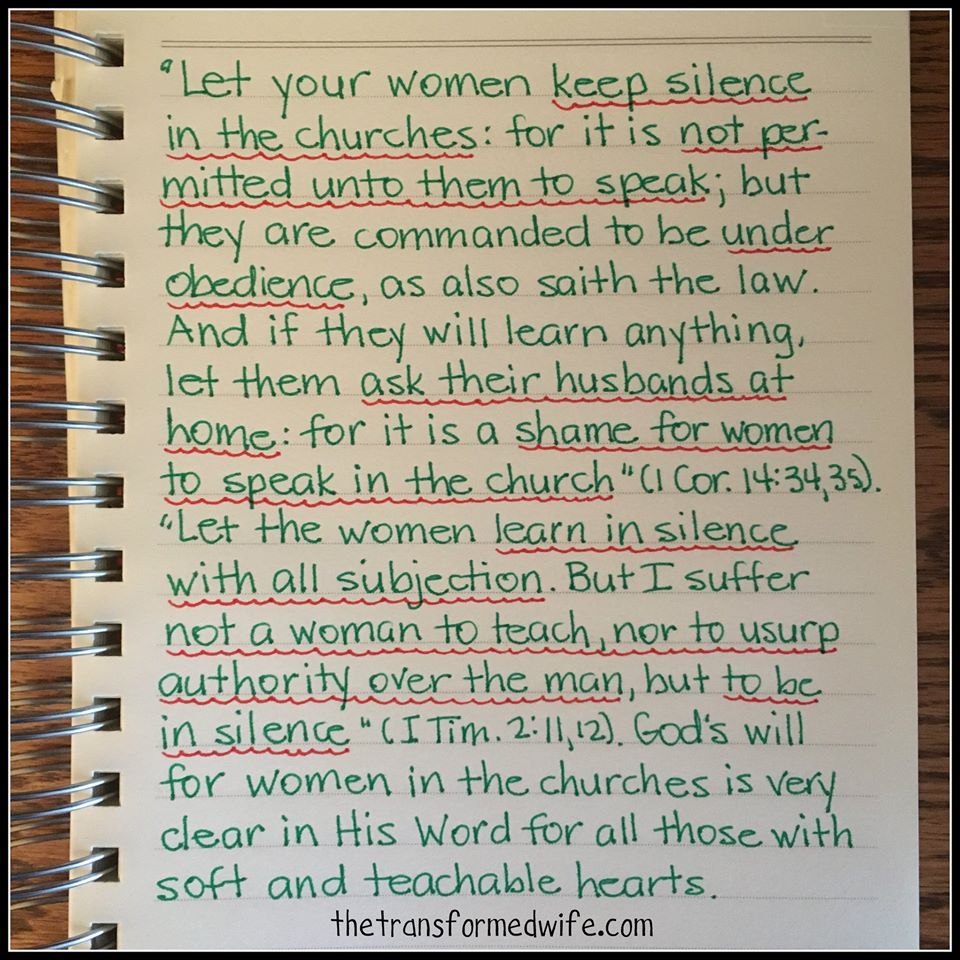 "Let your women keep silence
in the churches: for it is not per-
mitted unto them to speak; but
they are commanded to be under
obedience, as also saith the law.
And if they will learn anything,
let them ask their husbands at
home: for it is a shame for women
to speak in the church" (1 Cor. 14:34,35).
"Let the women learn in silence
with all subjection. But I suffer
not a woman to teach, nor to usurp
authority over the man, but to be
in silence" (I Tim. 2:11,12). God's will
for women in the churches is very
clear in His Word for all those with
soft and teachable hearts.
thetransformedwife.com